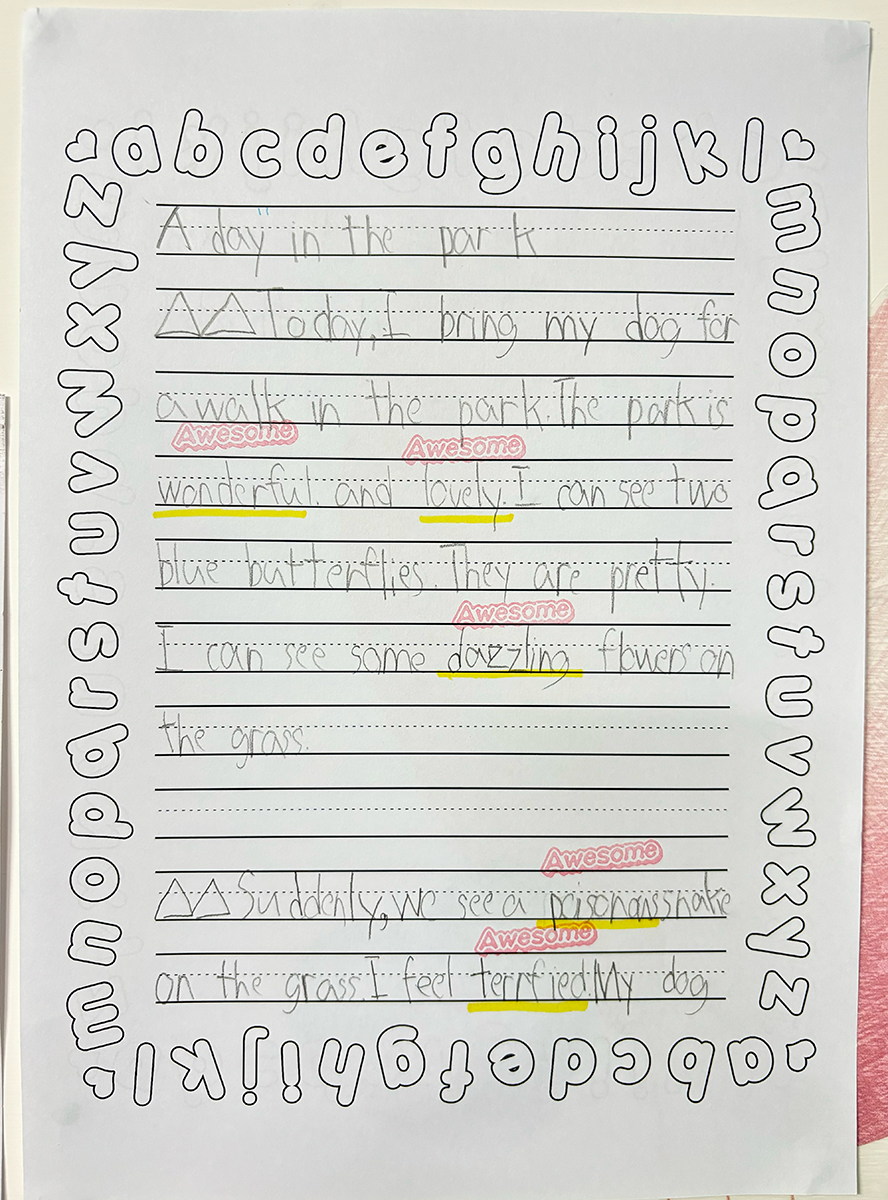 a b c d e f g h i j k l
m n o p q r s t u v w x y z
A day in the park
Today, I bring my dog for
a walk in the park. The park is
Awesome Awesome
wonderful. and lovely. I can see two
blue butterflies. They are pretty.
Awesome
I can see some dazzling flowers on
the grass.
Awesome
Suddenly, we see a poisonous snake
Awesome
on the grass. I feel terrfied. My dog
a b c d e f g h i j k l
m n o p q r s t u v w x y z